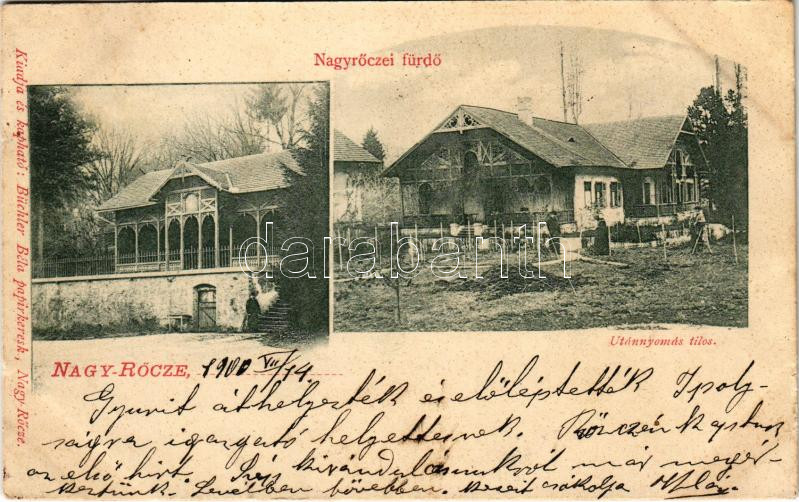 Nagyrőczei fürdő
Kiadja és kapható: Büchler Béla papirkeresk, Nagy-Rőcze.
darabanth
Utánnyomás tilos.
NAGY-RŐCZE, 1900 VII/14
Gyurit áthelyezték és előléptették Ipoly-
ságra igazgató helyettesnek. Rőczén kaptuk
az első hirt. kirándulásunkról már megér-
keztünk. Levélben bővebben. kezeit csókolja